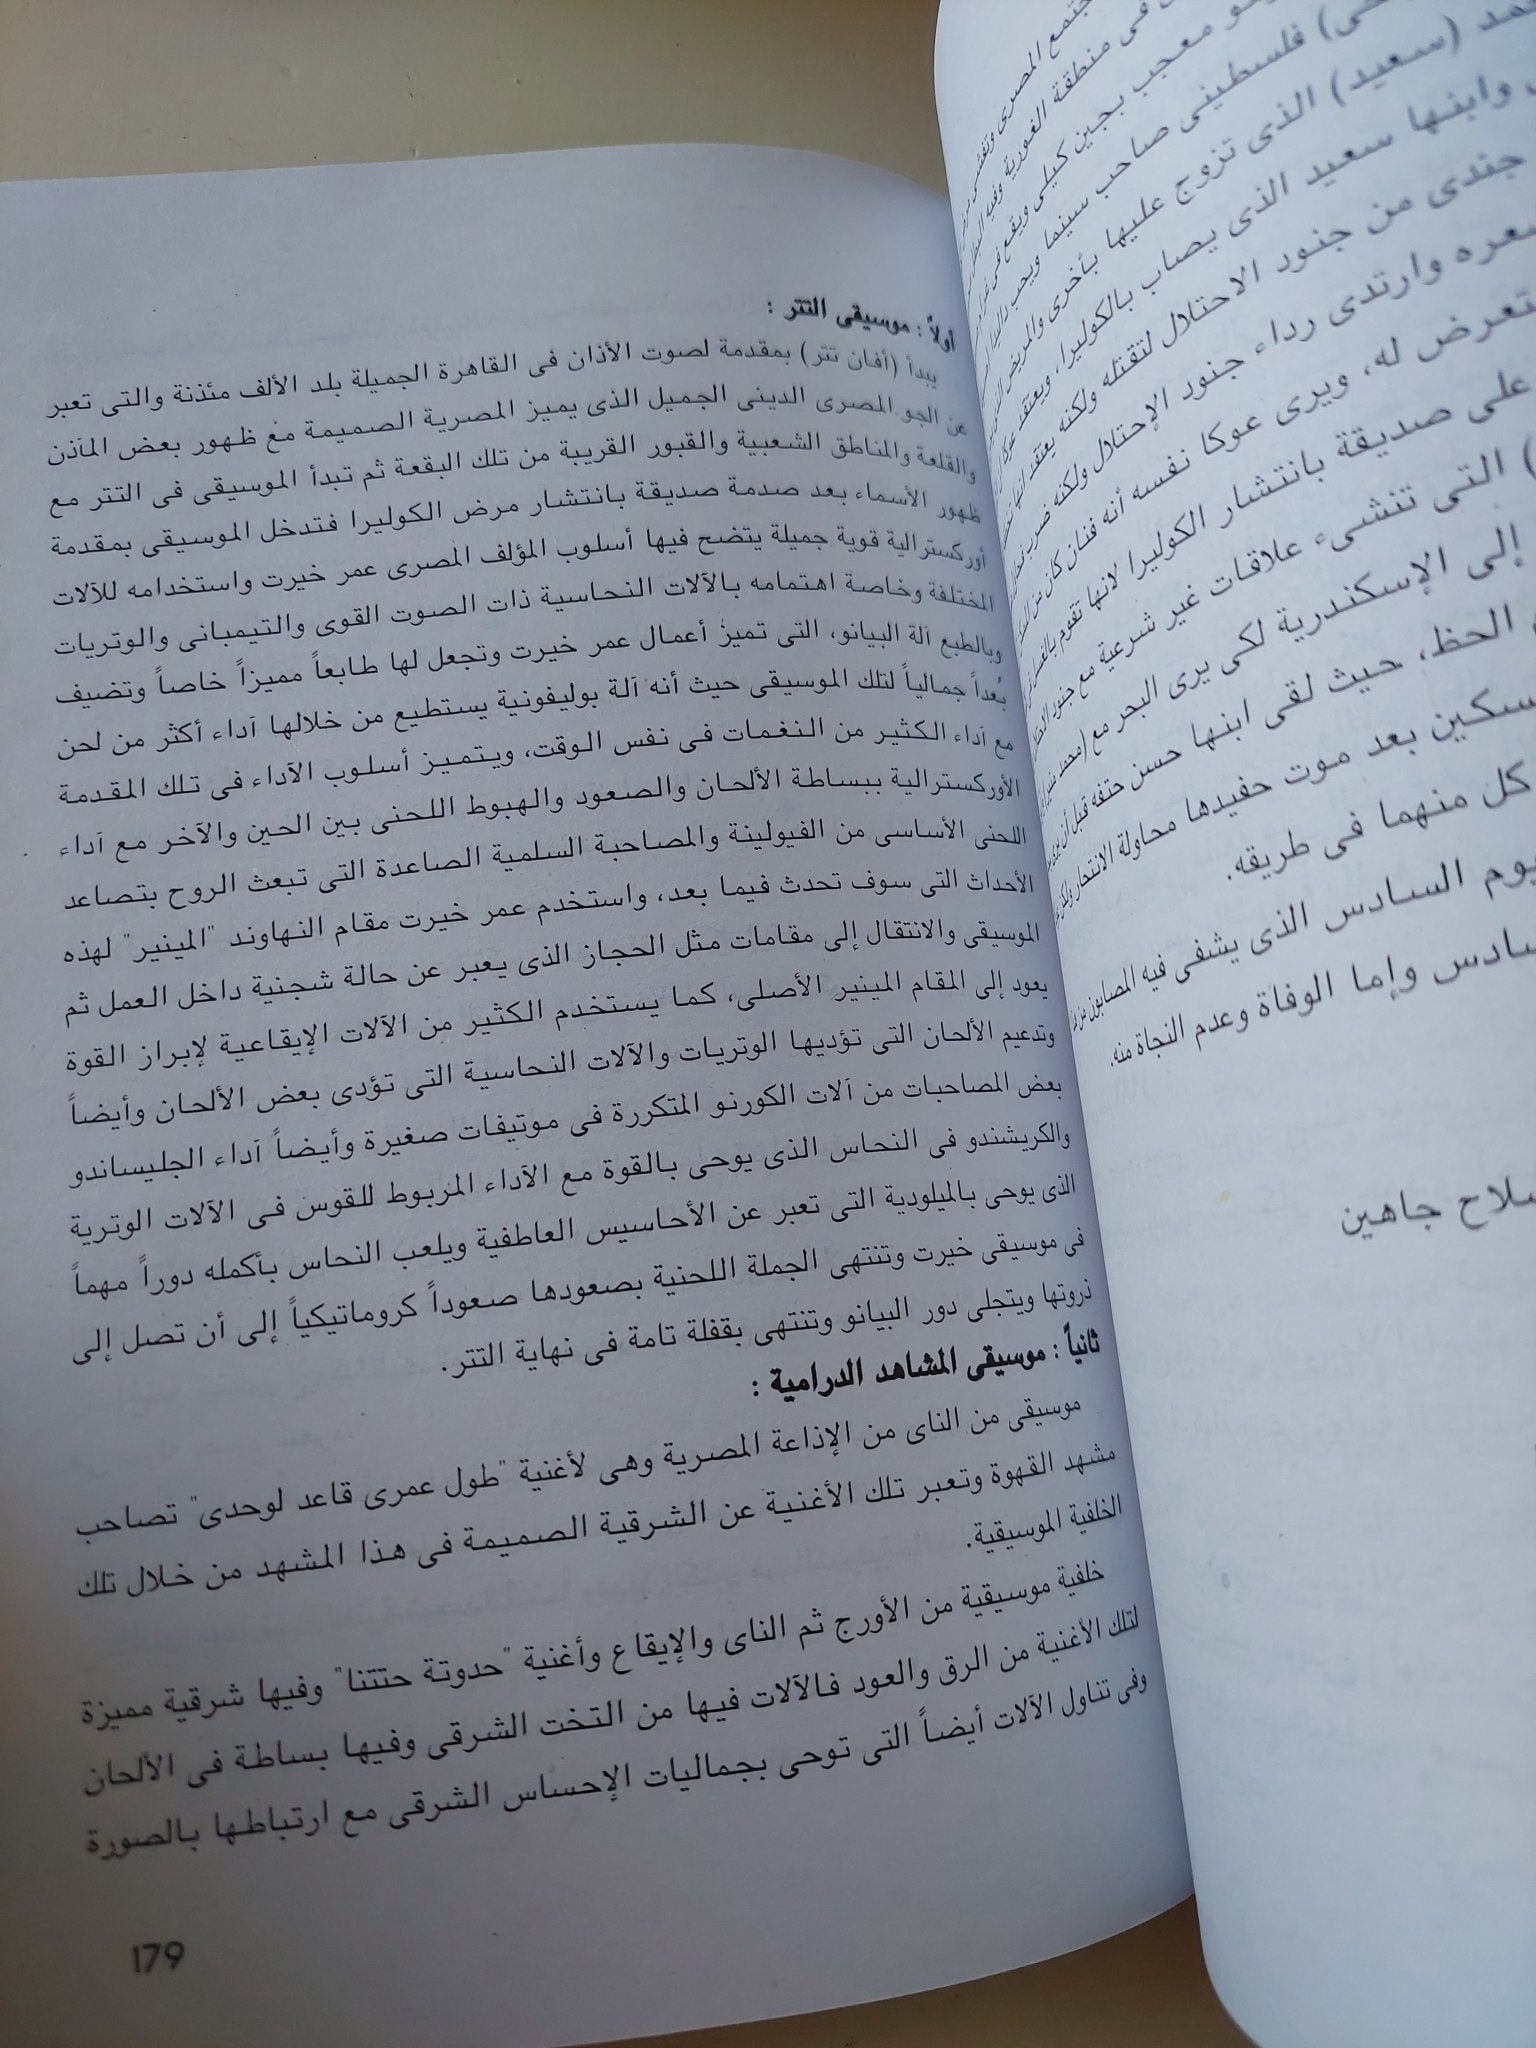 جتمع المصرى وتفشى
فى منطقة الغورية وفيه
معجب بجين كيلى ويقع فى
فلسطينى صاحب سينما ويحب
(سعيد) الذى تزوج عليها بأخرى والمريض
وابنها سعيد الذى يصاب بالكوليرا، ويعتقد
جندى من جنود الاحتلال لتقتله ولكنه يعتقد أنها
وارتدى رداء جنود الإحتلال ولكنه ضرب
له، ويرى عوكا نفسه أنه فنان كان من
على صديقة بانتشار الكوليرا لانها تقوم
التى تنشىء علاقات غير شرعية مع جنود
إلى الإسكندرية لكى يرى البحر مع (محمد
الحظ، حيث لقى ابنها حسن حتفه قبل أن
بعد موت حفيدها محاولة الانتحار ولكن
كل منهما فى طريقه.
السادس الذى يشفى فيه المصابون من
وإما الوفاة وعدم النجاة منه.
جاهين
أولاً : موسيقى التتر :
يبدأ (أفان تتر) بمقدمة لصوت الأذان فى القاهرة الجميلة بلد الألف مئذنة والتى تعبر
عن الجو المصرى الدينى الجميل الذى يميز المصرية الصميمة مع ظهور بعض المآذن
والقلعة والمناطق الشعبية والقبور القريبة من تلك البقعة ثم تبدأ الموسيقى فى التتر مع
ظهور الأسماء بعد صدمة صديقة بانتشار مرض الكوليرا فتدخل الموسيقى بمقدمة
أوركسترالية قوية جميلة يتضح فيها أسلوب المؤلف المصرى عمر خيرت واستخدامه للآلات
المختلفة وخاصة اهتمامه بالآلات النحاسية ذات الصوت القوى والتيمبانى والوتريات
وبالطبع آلة البيانو، التى تميز أعمال عمر خيرت وتجعل لها طابعاً مميزاً خاصاً وتضيف
بُعداً جمالياً لتلك الموسيقى حيث أنه آلة بوليفونية يستطيع من خلالها آداء أكثر من لحن
مع آداء الكثير من النغمات فى نفس الوقت، ويتميز أسلوب الآداء فى تلك المقدمة
الأوركسترالية ببساطة الألحان والصعود والهبوط اللحنى بين الحين والآخر مع آداء
اللحنى الأساسى من الفيولينة والمصاحبة السلمية الصاعدة التى تبعث الروح بتصاعد
الأحداث التى سوف تحدث فيما بعد، واستخدم عمر خيرت مقام النهاوند "المينير" لهذه
الموسيقى والانتقال إلى مقامات مثل الحجاز الذى يعبر عن حالة شجنية داخل العمل ثم
يعود إلى المقام المينير الأصلى، كما يستخدم الكثير من الآلات الإيقاعية لإبراز القوة
وتدعيم الألحان التى تؤديها الوتريات والآلات النحاسية التى تؤدى بعض الألحان وأيضاً
بعض المصاحبات من آلات الكورنو المتكررة فى موتيفات صغيرة وأيضاً آداء الجليساندو
والكريشندو فى النحاس الذى يوحى بالقوة مع الآداء المربوط للقوس فى الآلات الوترية
الذى يوحى بالميلودية التى تعبر عن الأحاسيس العاطفية ويلعب النحاس بأكمله دوراً مهماً
فى موسيقى خيرت وتنتهى الجملة اللحنية بصعودها صعوداً كروماتيكياً إلى أن تصل إلى
ذروتها ويتجلى دور البيانو وتنتهى بقفلة تامة فى نهاية التتر.
ثانياً : موسيقى المشاهد الدرامية :
موسيقى من الناى من الإذاعة المصرية وهى لأغنية "طول عمرى قاعد لوحدى" تصاحب
مشهد القهوة وتعبر تلك الأغنية عن الشرقية الصميمة فى هذا المشهد من خلال تلك
الخلفية الموسيقية.
خلفية موسيقية من الأورج ثم الناى والإيقاع وأغنية "حدوتة حتتنا" وفيها شرقية مميزة
لتلك الأغنية من الرق والعود فالآلات فيها من التخت الشرقى وفيها بساطة فى الألحان
وفى تناول الآلات أيضاً التى توحى بجماليات الإحساس الشرقى مع ارتباطها بالصورة
179